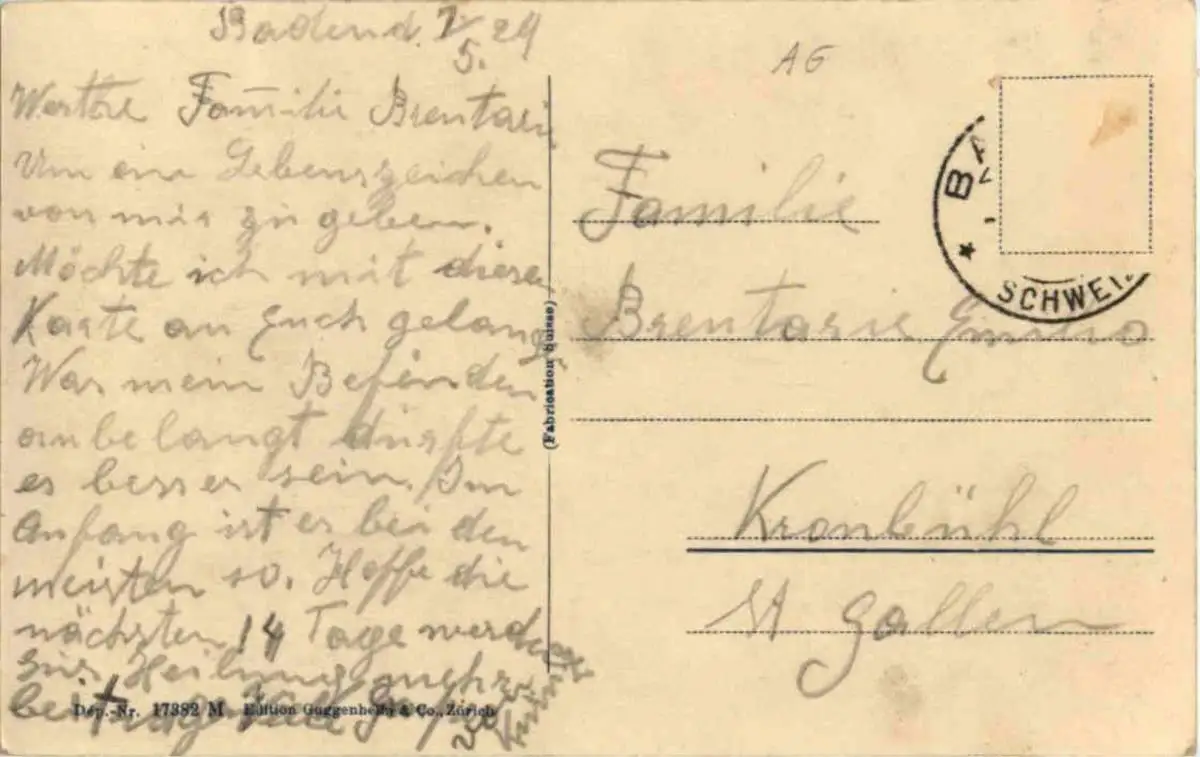 Baden d. 7/5. 24
Werthe Familie Brentari
Um ein Lebenszeichen
von mir zu geben.
Möchte ich mit dieser
Karte an Euch gelangen
Was mein Befinden
anbelangt dürfte
es besser sein. Im
Anfang ist es bei den
meisten so. Hoffe die
nächsten 14 Tage werden
zur Heilung mehr
beitragen
Dép.-Nr. 17382 M Edition Guggenheim & Co., Zürich
(Fabrication Suisse)
AG
BA
SCHWEI
Familie
Brentari Emilio
Kronbühl
St Gallen